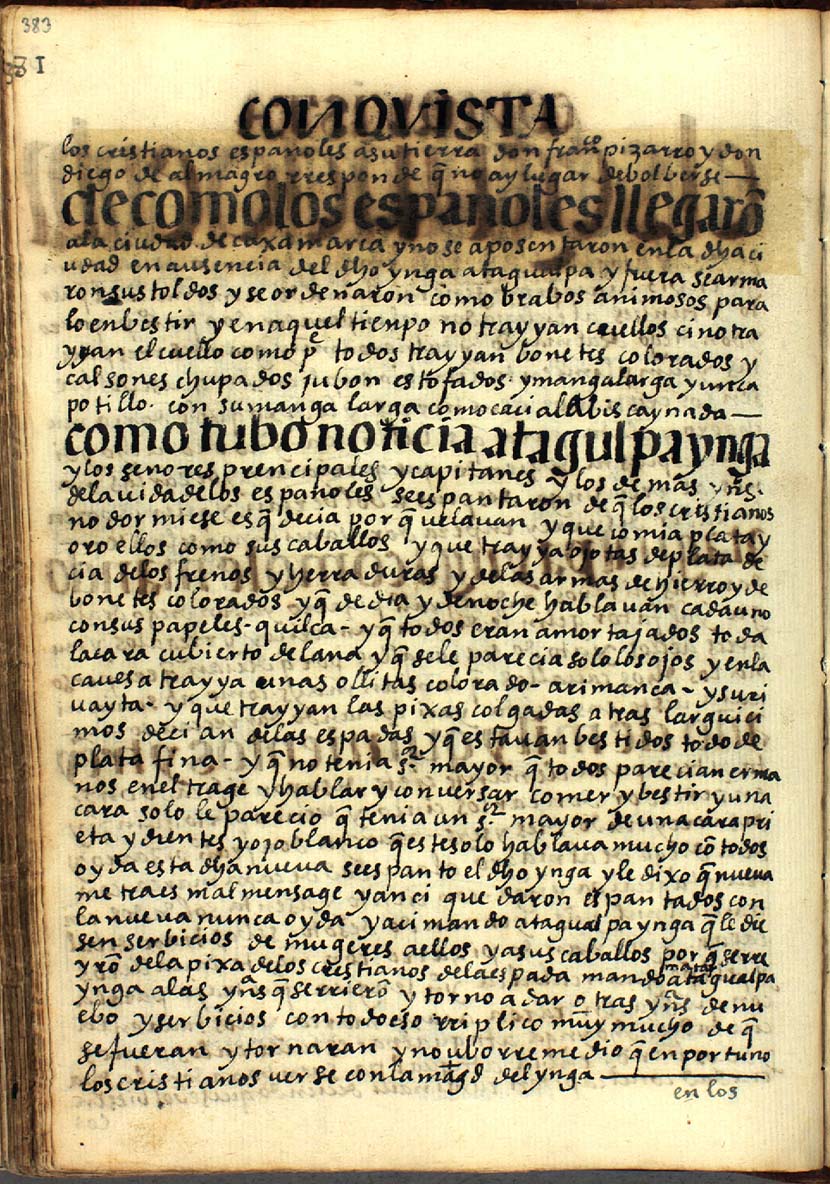 383
381
CONQVISTA
los cristianos españoles a su tierra don franco pizarro y don
diego de almagro rresponde q̃ no ay lugar de bolberse —
de como los españoles llegarõ
a la ciudad de caxamarca y no se aposentaron en la dha ci
udad en ausencia del dho ynga atagualpa y fuera se arma
ron sus toldos y se ordenaron como brabos animosos para
lo enbestir y en aquel tienpo no trayyan cuellos cino tra
yyan el cuello como pe todos trayyan bonetes colorados y
calsones chupados jubon estofados y manga larga y un ca
potillo con su manga larga como caci a la biscaynada —
como tubo noticia atagulpa ynga
y los señores prencipales y capitanes y los demas yns.
de la vida de los españoles se espantaron de q̃ los cristianos
no dormiese es q̃ decia por q̃ uelauan y que comia plata y
oro ellos como sus caballos y que trayya ojotas de plata de
cia de los frenos y herraduras y de las armas de hierro y de
bonetes colorados y q̃ de dia y de noche hablauan cada uno
con sus papeles - quilca - y q̃ todos eran amortajados toda
la cara cubierto de lana y q̃ se le parecia solo los ojos y en la
cauesa trayya unas ollitas colorado - arimanca - y suri
uayta - y que trayyan las pixas colgadas atras larguici
mos decian de las espadas y q̃ estauan bestidos todo de
plata fina - y q̃ no tenia sr mayor q̃ todos parecian erma
nos en el trage y hablar y conversar comer y bestir y una
cara solo le parecio q̃ tenia un sr mayor de una cara pri
eta y dientes y ojo blanco q̃ este solo hablaua mucho cõ todos
oyda esta dha nueva se espanto el dho ynga y le dixo q̃ nueua
me traes mal mensage y anci quedaron espantados con
la nueua nunca oyda y aci mando atagualpa ynga q̃ le die
sen serbicios de mugeres a ellos y a sus caballos por q̃ se rre
yrõ de la pixa de los cristianos de la espada mandõ matar atagualpa
ynga a las yns q̃ se rrierõ y torno a dar otras yns de nu
ebo y serbicios con todo eso rriplico muy mucho de q̃
se fueran y tornaran y no ubo rremedio q̃ enportuno
los cristianos verse con la magd del ynga —
en los